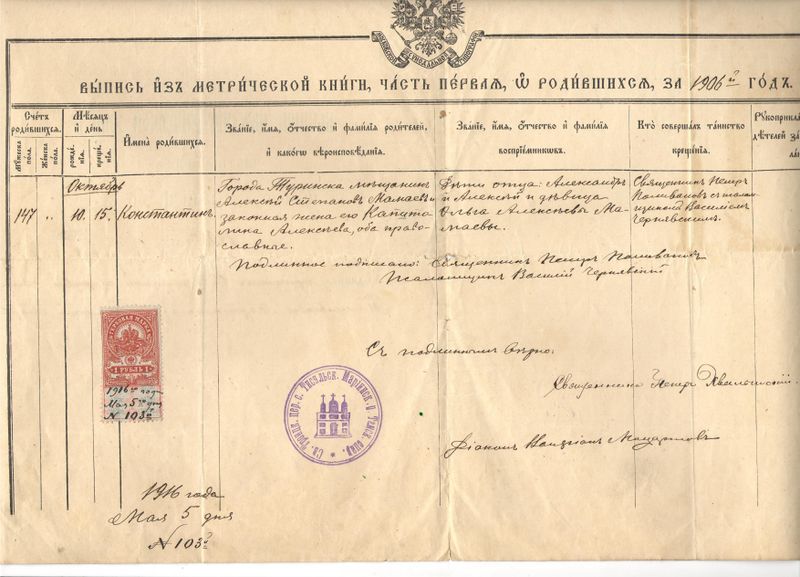 Выпись изъ метрической книги, часть первая, ѡ родившихся, за 1906й годъ.
Счетъ родившихся.
Мужеска пола.
Женска пола.
Мѣсяцъ и день
рожденія.
крещенія.
Имена родившихся.
Званіе, имя, отчество и фамилія родителей,
и какогѡ вѣроисповѣданія.
Званіе, имя, отчество и фамилія
воспріемниковъ.
Кто совершалъ таинство
крещенія.
Рукоприкла
дѣтелей за
Октябрь
147 „ 10. 15. Константинъ.
Города Туринска мѣщанинъ
Алексѣй Степановъ Мамаевъ и
законная жена его Капито
лина Алексѣева, оба право
славные.
Дѣти отца: Александръ
и Алексѣй и дѣвица
Ольга Алексѣевы Ма
маевы.
Священникъ Петръ
Поливановъ съ псалом
щикомъ Василіемъ
Чернявскимъ.
Подлинное подписано: Священникъ Петръ Поливановъ
Псаломщикъ Василій Чернявскій
Съ подлиннымъ вѣрно:
Священникъ Петръ
Діаконъ
ГЕРБОВАЯ МАРКА
1 РУБЛЬ 1
1916 го году
Мая 5 го дня
N 103й
Св. Троицк. цер. с. Маріинск. у. Томск. епар.
1916 года
Мая 5 дня
N 103й